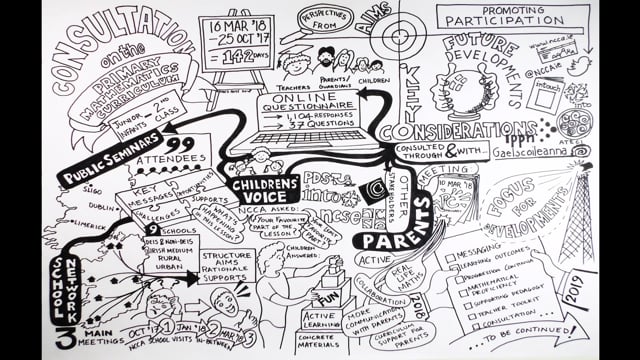 CONSULTATION
on the
PRIMARY
MATHEMATICS
CURRICULUM
JUNIOR
INFANTS - 2ND
CLASS
16 MAR '18
- 25 OCT '17
= 142 DAYS
PERSPECTIVES
FROM
AIMS
TEACHERS
PARENTS/
GUARDIANS
CHILDREN
ONLINE
QUESTIONNAIRE
→ 1,104 RESPONSES
→ 37 QUESTIONS
PROMOTING
PARTICIPATION
FUTURE
DEVELOPMENTS
www.ncca.ie
@NCCAie
intouch
KEY
CONSIDERATIONS
CONSULTED
THROUGH
& WITH...
ippn
ATECI
Gaelscoileanna
PUBLIC SEMINARS
99
ATTENDEES
SLIGO
DUBLIN
LIMERICK
KEY
MESSAGES
OPPORTUNITIES
CHALLENGES
SUPPORTS
CHILDRENS
VOICE
NCCA ASKED:
WHAT'S
HAPPENING
IN THIS
LESSON?
YOUR FAVOURITE
PART OF THE
LESSON?
PDST
into
ncse
OTHER
STAKEHOLDERS
PARENTS
MEETING
10 MAR '18
FOCUS
FOR
DEVELOPMENTS
9 SCHOOLS
DEIS & NON-DEIS
IRISH MEDIUM
RURAL
URBAN
STRUCTURE
AIMS
RATIONALE
SUPPORTS
SCHOOL
NETWORK
3 MAIN
MEETINGS
OCT '17
1
JAN '18
2
MAR '18
3
NCCA SCHOOL VISITS IN-BETWEEN
CHILDREN
ANSWERED:
FUN
ACTIVE
LEARNING
CONCRETE
MATERIALS
ACTIVE
REAL
LIFE
MATHS
COLLABORATION
MORE
COMMUNICATION
WITH PARENTS
CURRICULUM
SUPPORT FOR
PARENTS
2018
MESSAGING
LEARNING OUTCOMES
PROGRESSION CONTINUA
MATHEMATICAL
PROFICIENCY
SUPPORTING PEDAGOGY
TEACHER TOOLKIT
CONSULTATION ...
... TO BE CONTINUED!
2019